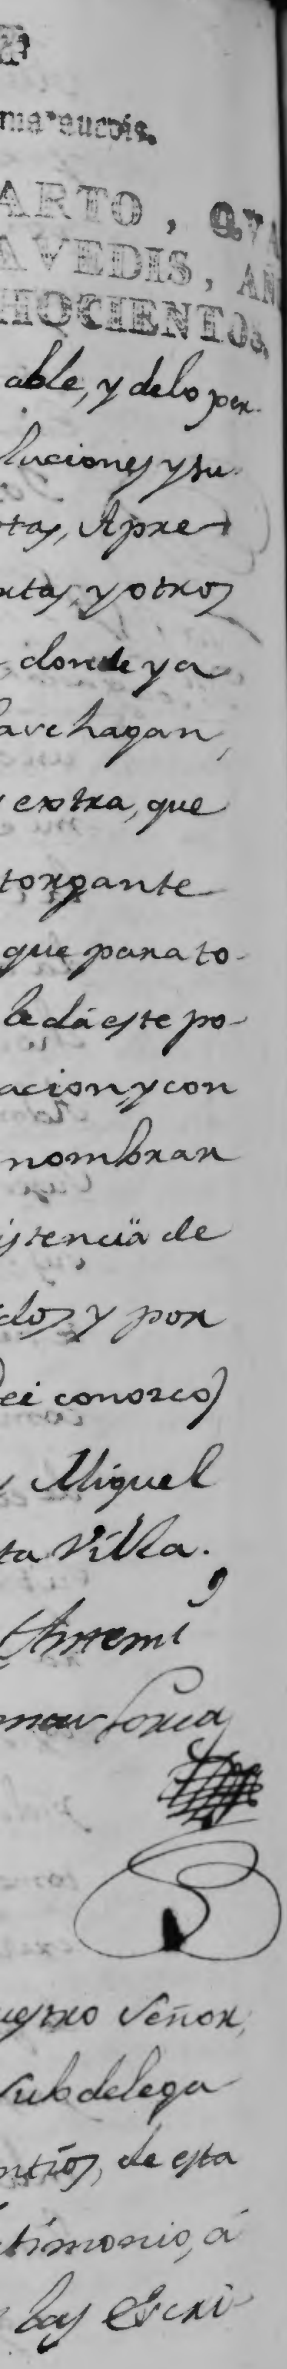 maravedis.
ARTO, QVA
AVEDIS, AÑ
HOCIENTOS.
able, y delo per-
luciones y su-
tas, Apre-
rtas, y otros
donde ya
hagan,
extra, que
torgante
que para to-
le dá este po-
acion, y con
nombrar
istencia de
dos, y por
ei conosco)
Miguel
ta Villa.
Antemi

uestro Señor,
Subdelega
de esta
timonio, á
las Escri-